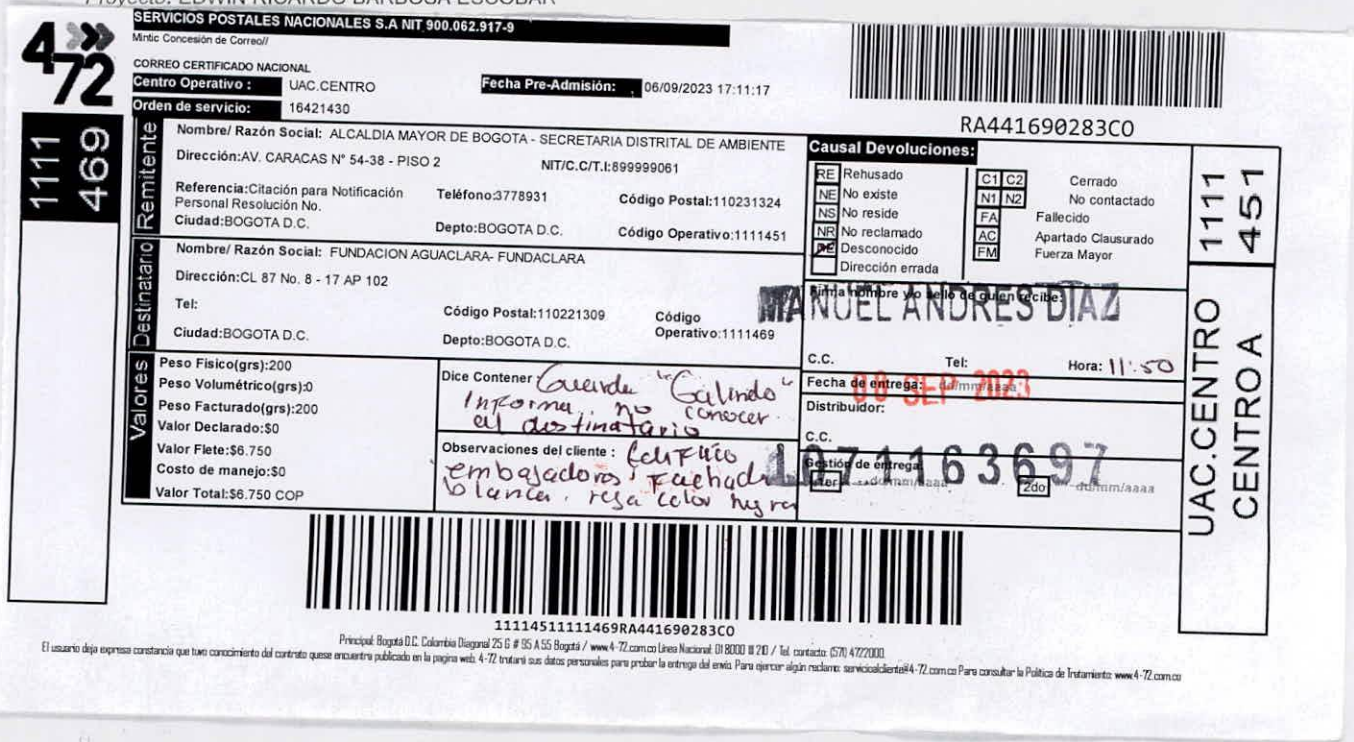 Proyecto: EDWIN RICARDO BARBOSA ESCOBAR
472
SERVICIOS POSTALES NACIONALES S.A NIT 900.062.917-9
Mintic Concesión de Correo//
CORREO CERTIFICADO NACIONAL
Centro Operativo : UAC.CENTRO
Fecha Pre-Admisión: 06/09/2023 17:11:17
Orden de servicio: 16421430
RA441690283CO
1111
469
Remitente
Nombre/ Razón Social: ALCALDIA MAYOR DE BOGOTA - SECRETARIA DISTRITAL DE AMBIENTE
Dirección:AV. CARACAS N° 54-38 - PISO 2 NIT/C.C/T.I:899999061
Referencia:Citación para Notificación Personal Resolución No.
Teléfono:3778931 Código Postal:110231324
Ciudad:BOGOTA D.C. Depto:BOGOTA D.C. Código Operativo:1111451
Destinatario
Nombre/ Razón Social: FUNDACION AGUACLARA- FUNDACLARA
Dirección:CL 87 No. 8 - 17 AP 102
Tel: Código Postal:110221309 Código Operativo:1111469
Ciudad:BOGOTA D.C. Depto:BOGOTA D.C.
Valores
Peso Fisico(grs):200
Peso Volumétrico(grs):0
Peso Facturado(grs):200
Valor Declarado:$0
Valor Flete:$6.750
Costo de manejo:$0
Valor Total:$6.750 COP
Dice Contener : Guarda "Galindo"
Informa. no conocer
al destinatario
Observaciones del cliente :
embajadores. Fachada
blanca. reja color negra
Causal Devoluciones:
RE Rehusado
NE No existe
NS No reside
NR No reclamado
DE Desconocido
Dirección errada
C1 C2 Cerrado
N1 N2 No contactado
FA Fallecido
AC Apartado Clausurado
FM Fuerza Mayor
Firma nombre y/o sello de quien recibe:
MANUEL ANDRES DIAZ
C.C. Tel: Hora: 11:50
Fecha de entrega: dd/mm/aaaa
08 SEP 2023
Distribuidor:
C.C.
1071163697
Gestión de entrega
1er dd/mm/aaaa 2do dd/mm/aaaa
1111
451
UAC.CENTRO
CENTRO A
11114511111469RA441690283CO
Principal: Bogotá D.C. Colombia Diagonal 25 G # 95 A 55 Bogotá / www.4-72.com.co Línea Nacional: 01 8000 111 210 / Tel. contacto: (571) 4722000.
El usuario deja expresa constancia que tuvo conocimiento del contrato quese encuentra publicado en la pagina web. 4-72 tratará sus datos personales para probar la entrega del envio. Para ejercer algún reclamo: servicioalcliente@4-72.com.co Para consultar la Politica de Tratamiento: www.4-72.com.co